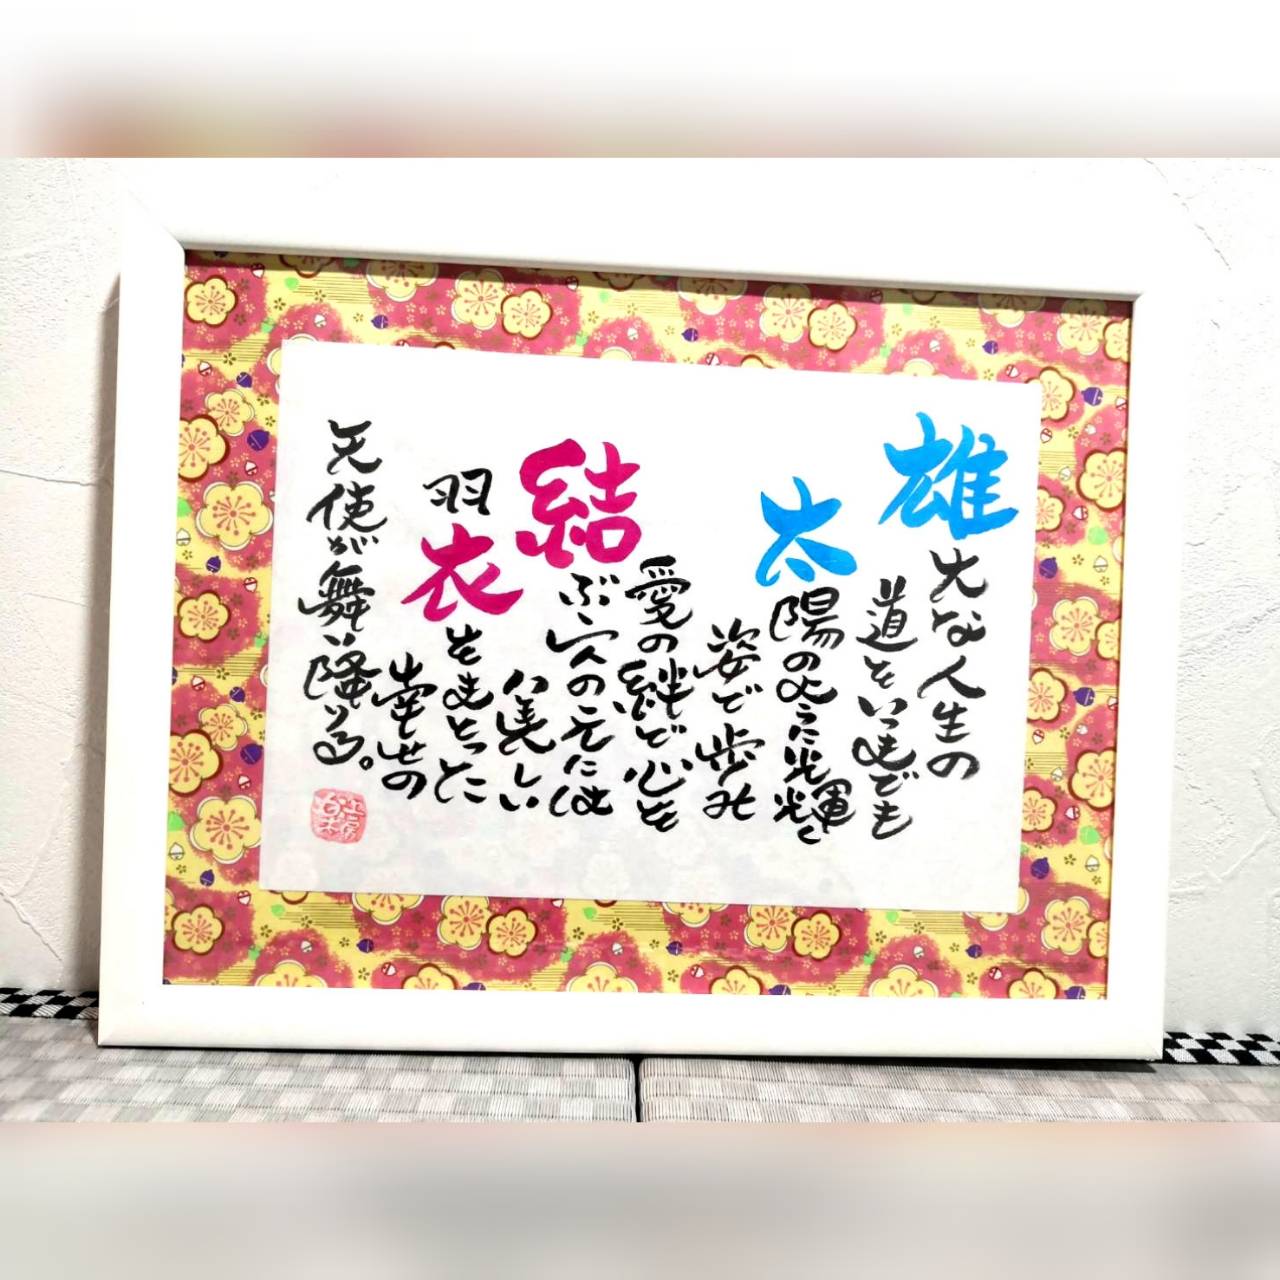 雄大な人生の
道をいつまでも
太陽のように光輝く
姿で歩み
愛の絆で心を
結ぶ二人の元には
美しい
羽衣をまとった
幸せの
天使が舞い降りる。